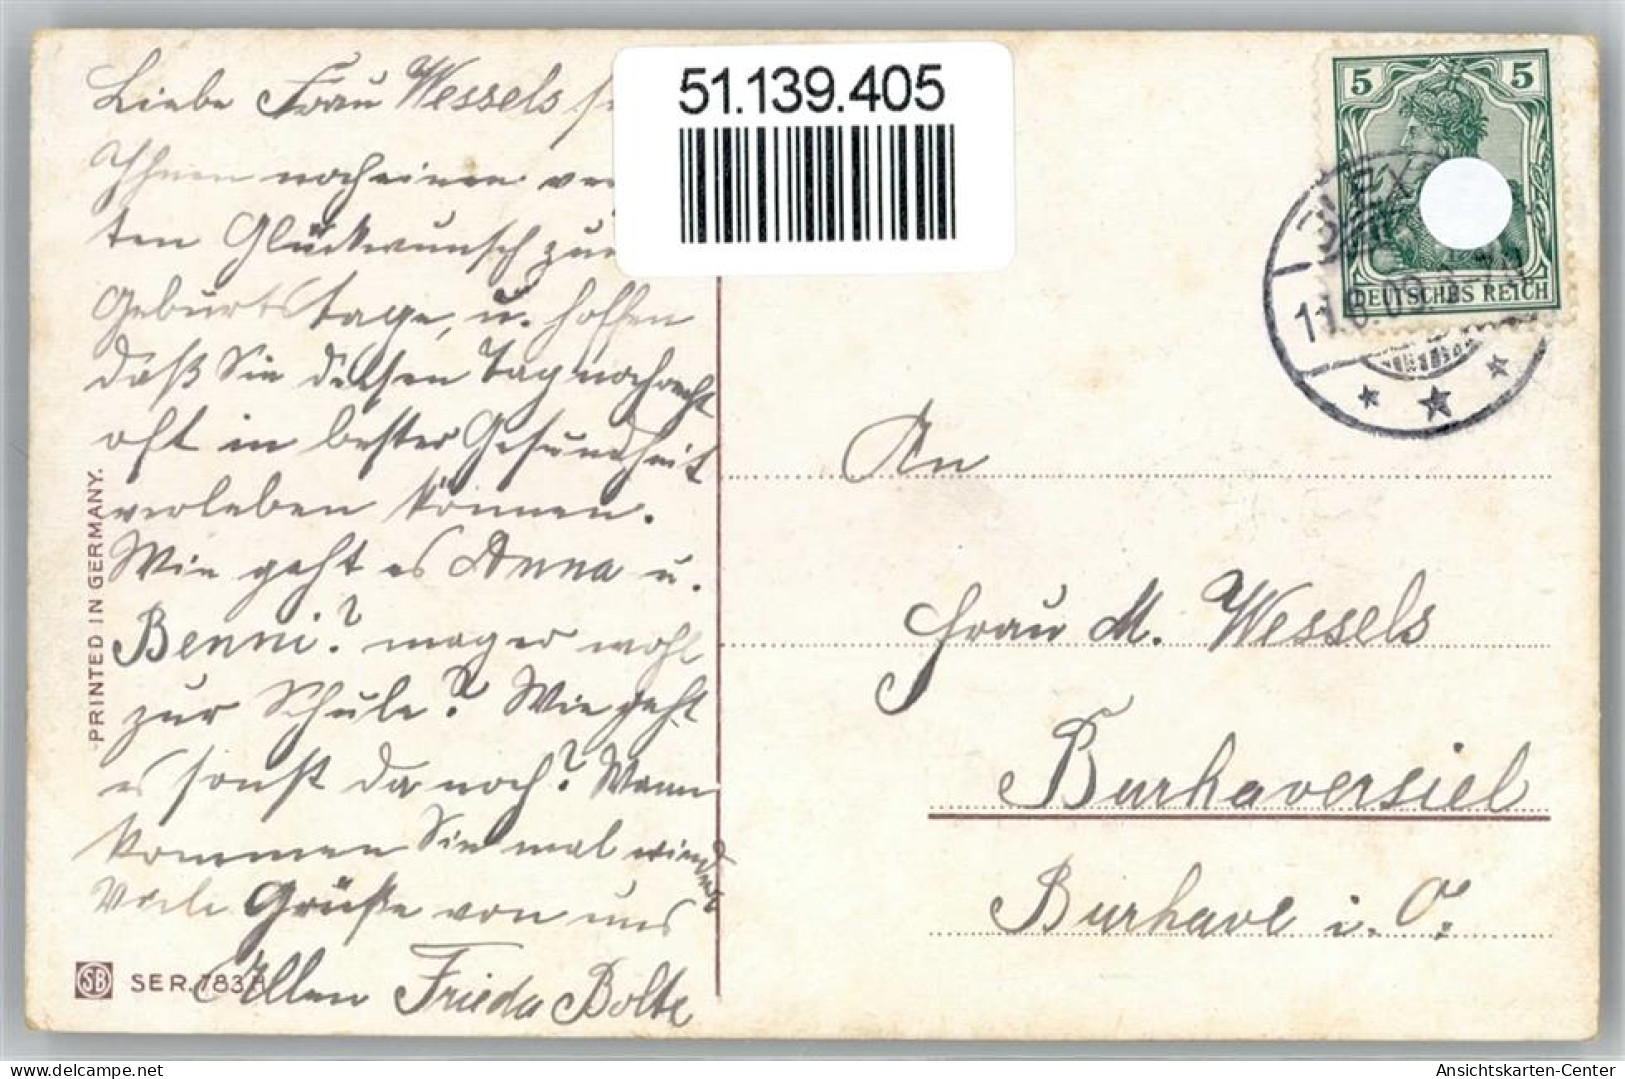 Liebe Frau Wessels
Ihnen noch einen
ten Glückwunsch zum
Geburtstage, u. hoffen
daß Sie diesen Tag noch recht
oft in bester Gesundheit
verleben können.
Wie geht es Anna u.
Benni? mag er wohl
zur Schule? Wie geht
es sonst da noch? Wann
kommen Sie mal wieder
Viele Grüße von uns
Allen Frieda Bolte
PRINTED IN GERMANY.
SB SER. 783
51.139.405
5 5
DEUTSCHES REICH
An
Frau M. Wessels
Burhaversiel
Burhave i. O.
delcampe.net
Ansichtskarten-Center